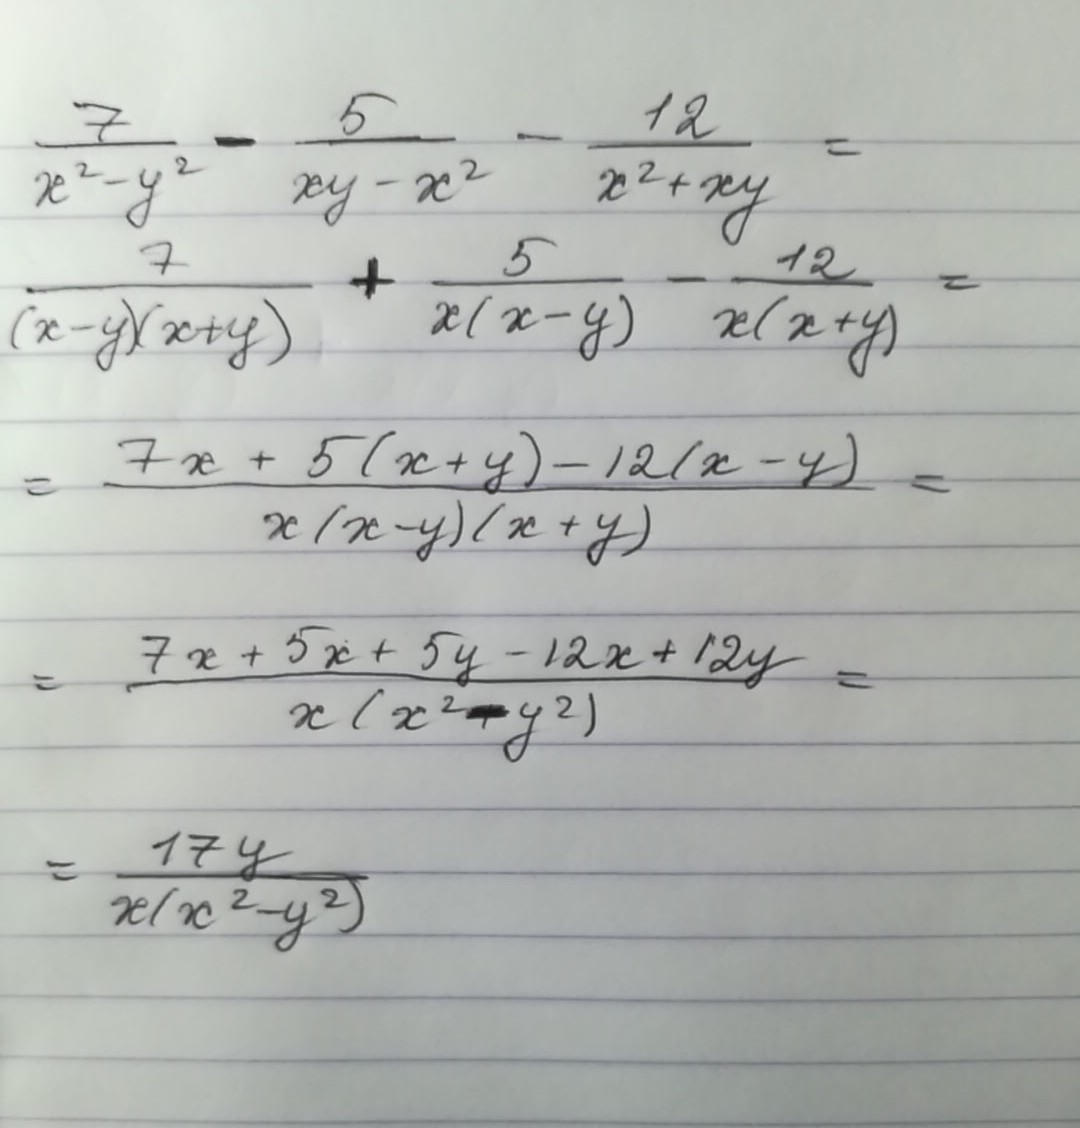 7/(x²-y²) - 5/(xy-x²) - 12/(x²+xy) =
7/((x-y)(x+y)) + 5/(x(x-y)) - 12/(x(x+y)) =
= (7x + 5(x+y) - 12(x-y))/(x(x-y)(x+y)) =
= (7x + 5x + 5y - 12x + 12y)/(x(x²-y²)) =
= 17y/(x(x²-y²))